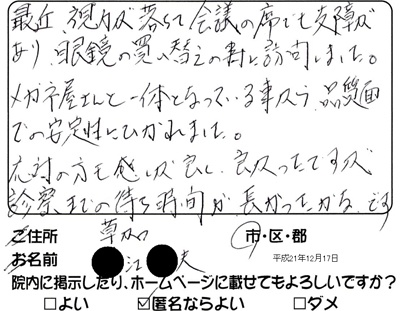 最近、視力が落ちて会議の席でも支障が
あり、眼鏡の買い替えの為に訪問しました。
メガネ屋さんと一体となっている事から、品質面
での安定性にひかれました。
応対の方も感じが良く、良かったですが
診察までの待ち時間が長かったかな、です
ご住所 草加 市・区・郡
お名前 ●江●夫 平成21年12月17日
院内に掲示したり、ホームページに載せてもよろしいですか?
□よい ☑匿名ならよい □ダメ